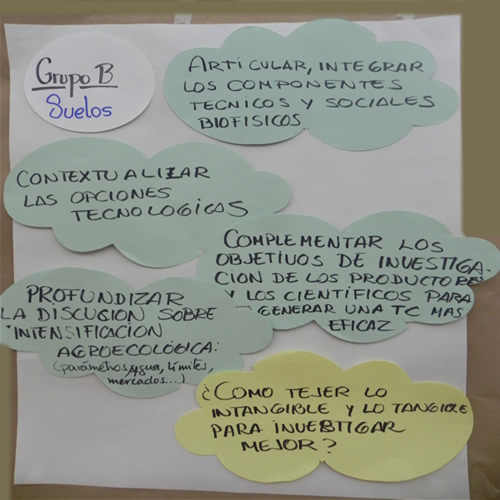 Grupo B
Suelos
ARTICULAR, INTEGRAR
LOS COMPONENTES
TECNICOS Y SOCIALES
BIOFISICOS
CONTEXTUALIZAR
LAS OPCIONES
TECNOLOGICAS
COMPLEMENTAR LOS
OBJETIVOS DE INVESTIGA-
CION DE LOS PRODUCTORES
Y LOS CIENTÍFICOS PARA
GENERAR UNA TC MAS
EFICAZ
PROFUNDIZAR
LA DISCUSION SOBRE
"INTENSIFICACION
AGROECOLÓGICA:
(parámetros, agua, límites,
mercados...)
¿COMO TEJER LO
INTANGIBLE Y LO TANGIBLE
PARA INVESTIGAR
MEJOR?